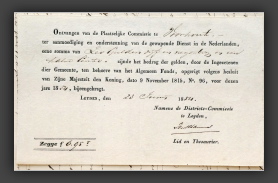 Ontvangen van de Plaatselijke Commissie te
ter aanmoediging en ondersteuning van de gewapende Dienst in de Nederlanden,
eene somme van Zes Guldens
Cents, zijnde het bedrag der gelden, door de Ingezetenen
dier Gemeente, ten behoeve van het Algemeen Fonds, opgevolge besluit
van Zijne Majesteit den Koning, dato 9 November 1815, N°. 96, voor dezen
jare 18 , bijeengebragt.
Leyden, den
Namens de Districts-Commissie
te Leyden,
Lid en Thesaurier.
Zegge ƒ 6.95